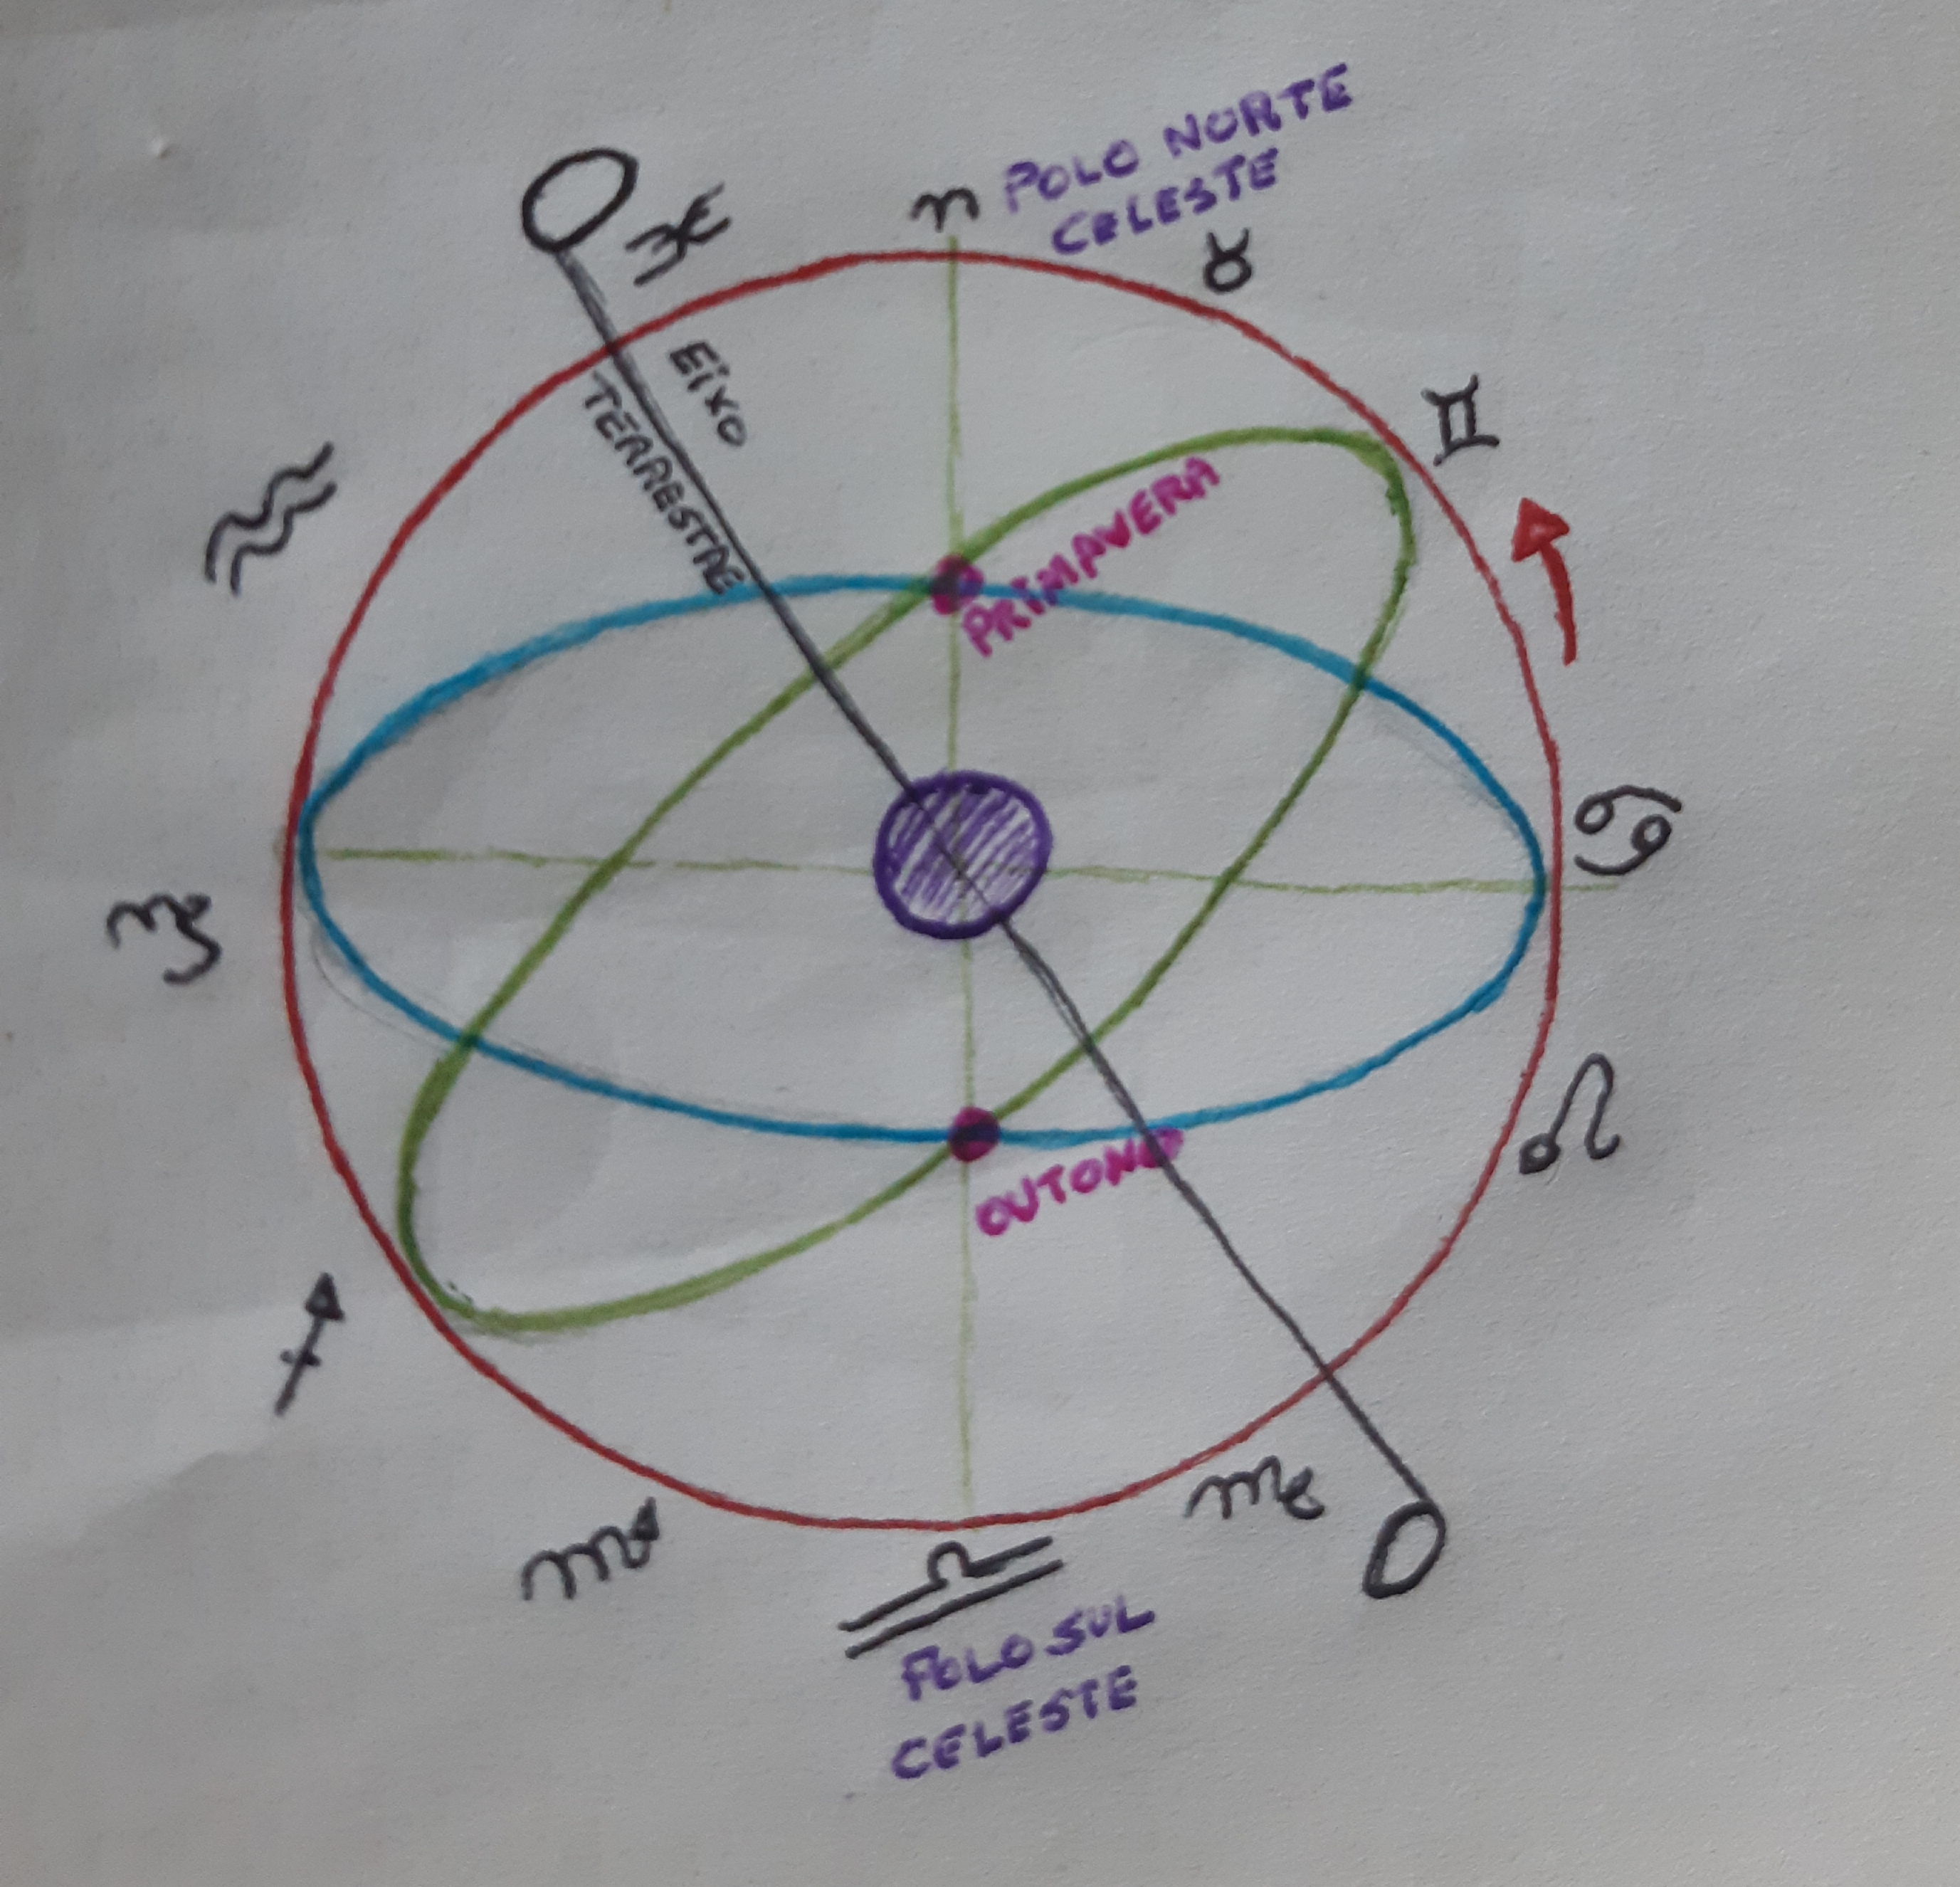 n POLO NORTE
CELESTE
♓
♉
Eixo
TERRESTRE
♊
PRIMAVERA
♒
♋
♑
♌
OUTONO
♐
♍
♏
♎
POLO SUL
CELESTE